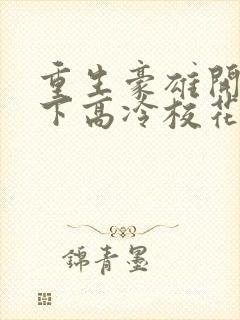 重生豪雄開
下高冷校花
錦青墨